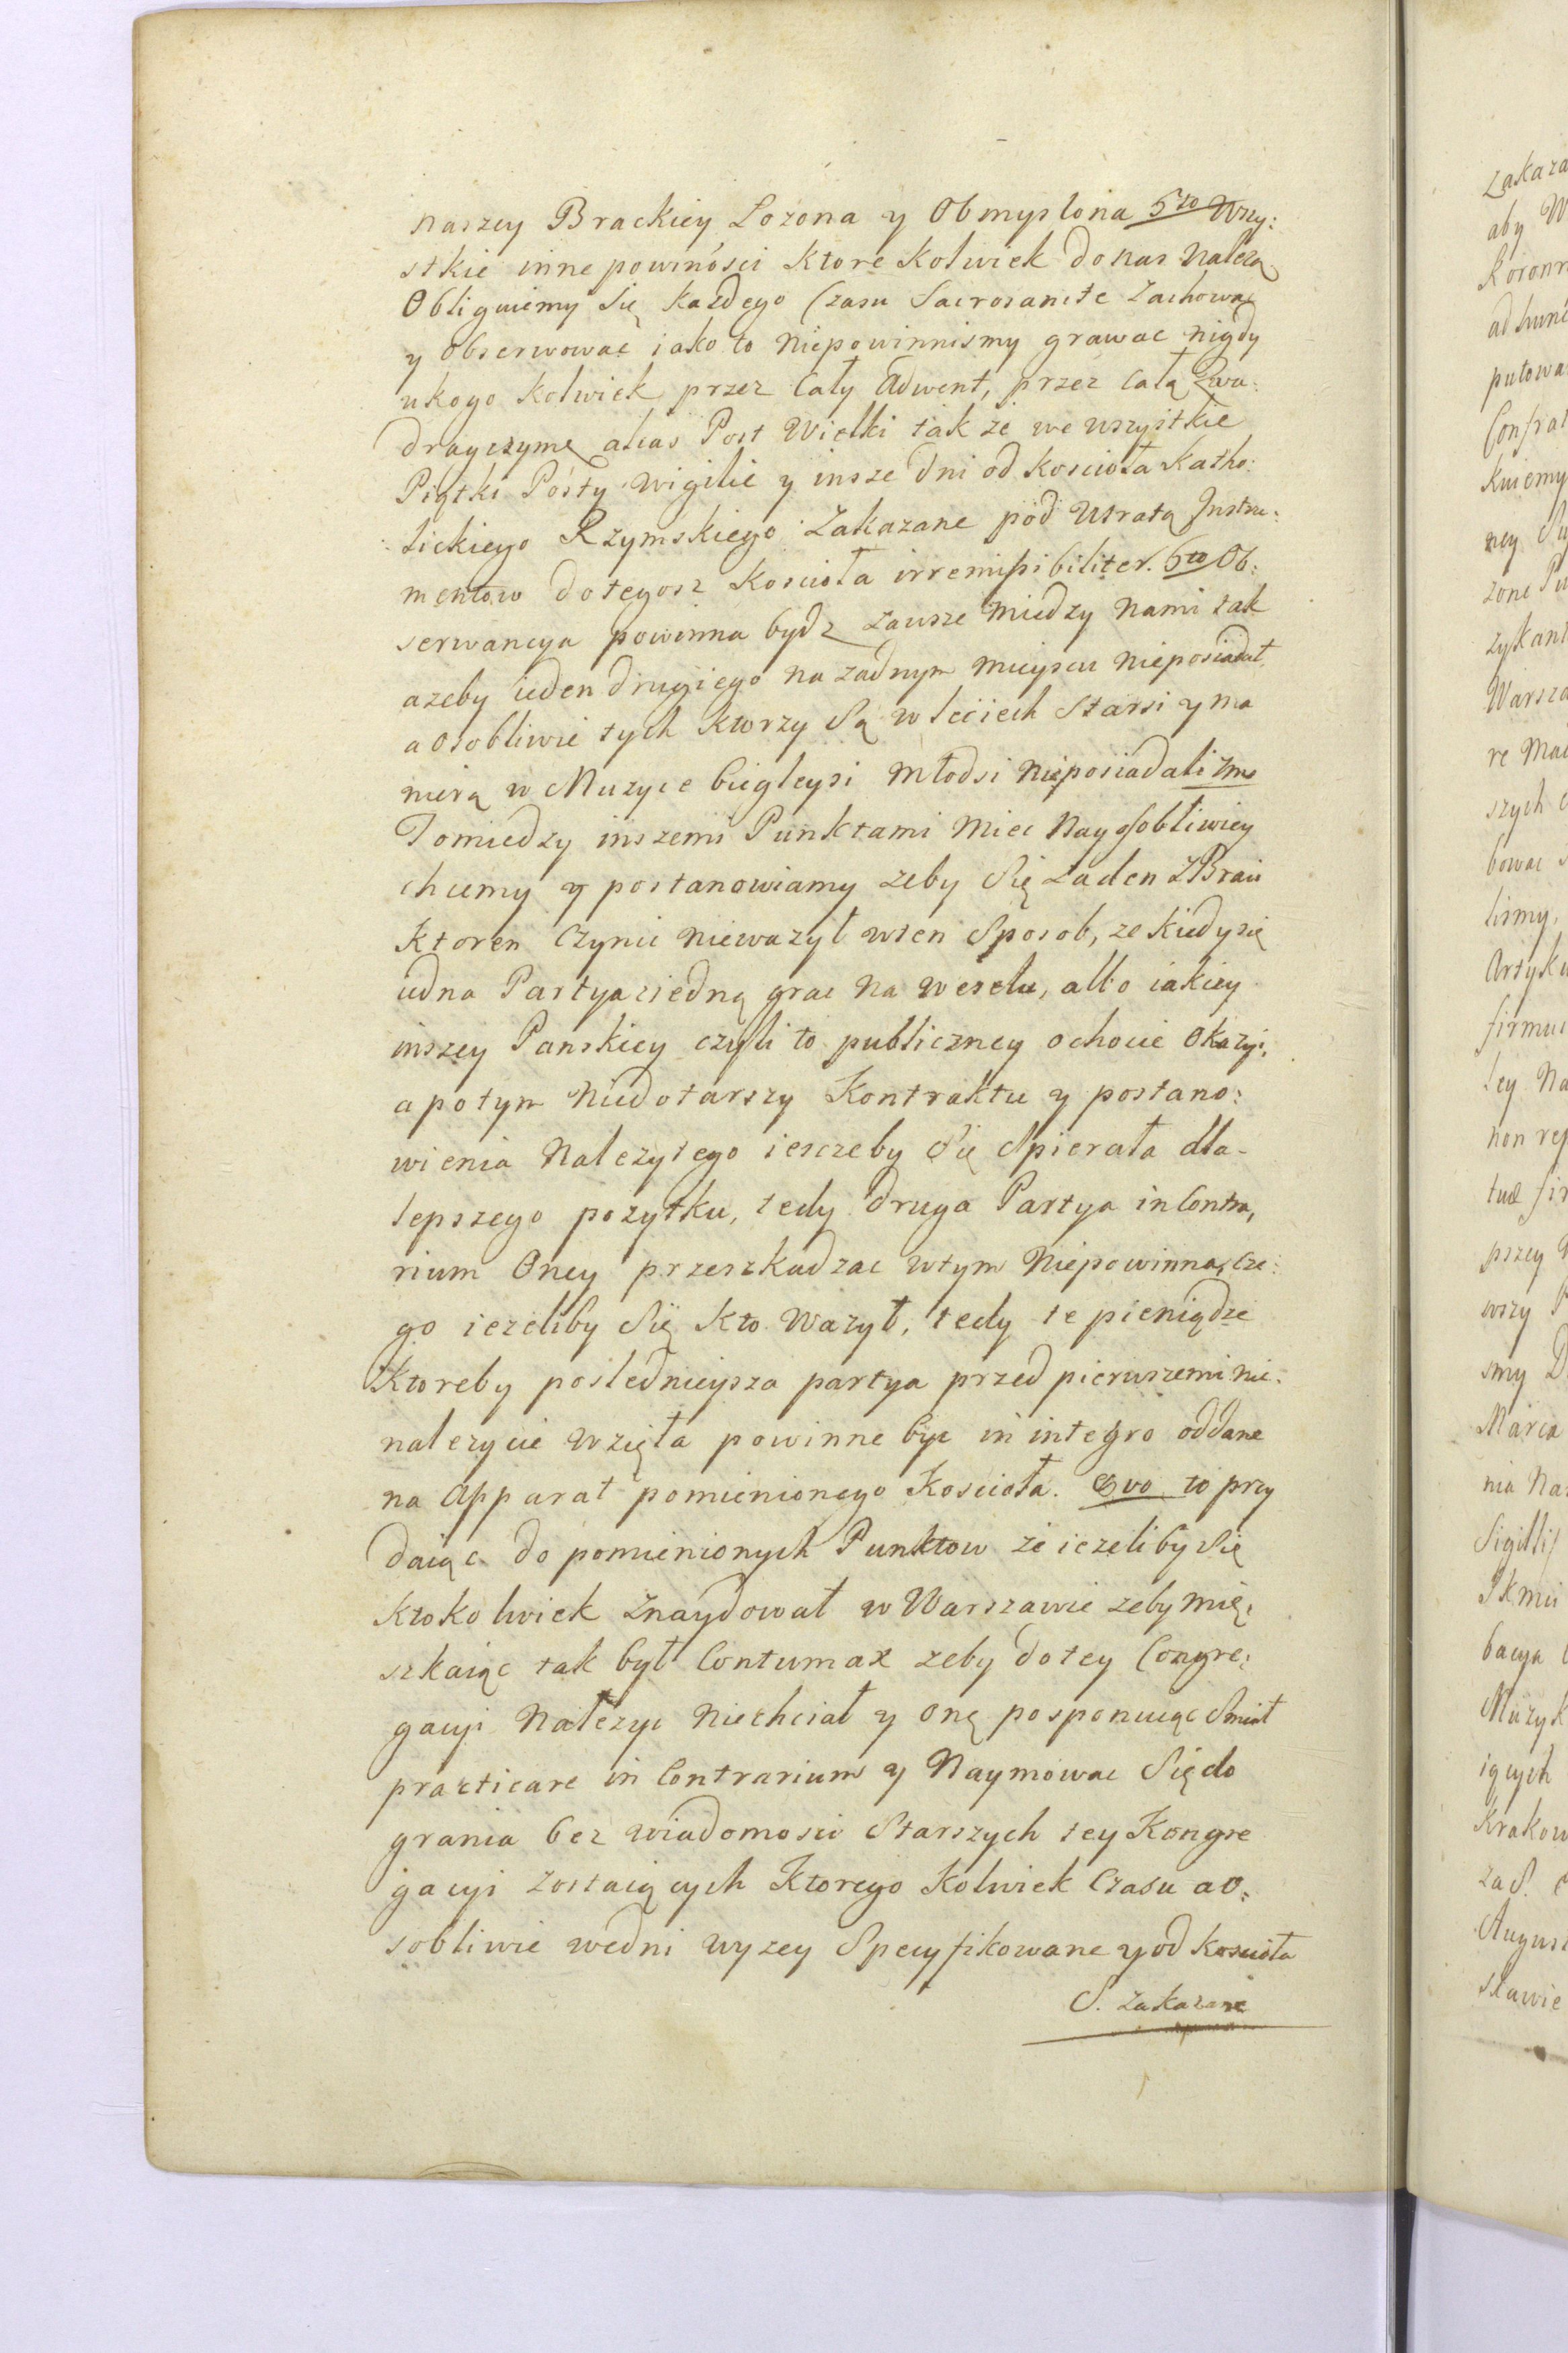 naszey Brackiey Łozona y Obmyslona 5to Wszy:
stkie inne powinosci Ktore Kolwiek do nas Nalezą
Obliguiemy Się Kazdego Czasu Sacrosancte Zachować
y Obserwowac iako to Niepowinnismy grawac nigdy
u kogo Kolwiek przez Cały Adwent, przez Całą Qwa:
dragezymę alias Post Wielki tak że we wszystkie
Piątki Posty Wigilie y insze Dni od Koscioła Katho:
lickiego Rzymskiego Zakazane pod Utratą Instru:
mentow do tegosz Koscioła irremissibiliter. 6to Ob:
serwancya powinna bydz Zawsze Miedzy Nami tak
azeby ieden drugiego na zadnym mieyscu nieposiadał
a osobliwie tych Ktorzy Są w leciech Starsi y ma
nierą w Muzyce biegleysi Młodsi Nieposiadali 7mo
Tomiedzy inszemi Punktami Miec Nayosobliwiey
chcemy y postanowiamy zeby Się Zaden Z Braci
Ktoren Czynic niewazył wten Sposob, ze Kiedy się
iedna Partya ziedną grac Na weselu, albo iakiey
inszey Panskiey czyli to publiczney ochocie Okazyi,
a potym Niedotarszy Kontraktu y postano:
wienia Nalezytego iesczeby Się Spierała dla-
lepszego pozytku, tedy druga Partya in Contra,
rium Oney przeszkadzac wtym Niepowinna, cze:
go iezeliby Się Kto Wazył, tedy te pieniądze
Ktoreby poslednieysza partya przed pierwszemi nie:
nalezycie wzięła powinne byc in integro oddane
na Apparat pomienionego Koscioła. 8vo to przy
daiąc do pomienionych Punktow że iezeliby Się
Ktoko lwiek Znaydował w Warszawie zeby mię:
szkaiąc tak był Contumax zeby do tey Congre:
gacyi Nalezyc Niechciał y onę posponuiąc Smiał
practicare in Contrarium y Naymowac Się do
grania bez wiadomosci Starszych tey Kongre
gacyi zostaiących Ktorego Kolwiek Czasu a o:
sobliwie wedni wyzey Specyfikowane y od Koscioła
S. zakazane
Zakaza
aby W
Koronn
ad hunc
putowa
Confrat
kuiemy
ney
zone
zykant
Warsza
re Mai
szych
bowac
lismy,
Artyku
firmui
tey Na
non rep
tuæ fir
pszey
wszy
smy D
Marca
nia Na
Sigilli
bacya
Muzyk
iących
Krakow
za S.
August
sławie